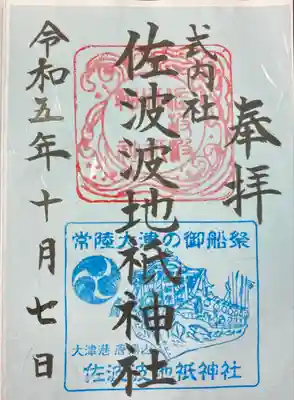 奉拝
式内社
佐波波地祇神社
令和五年十月七日
常陸大津の御船祭
大津港
佐波波地祇神社